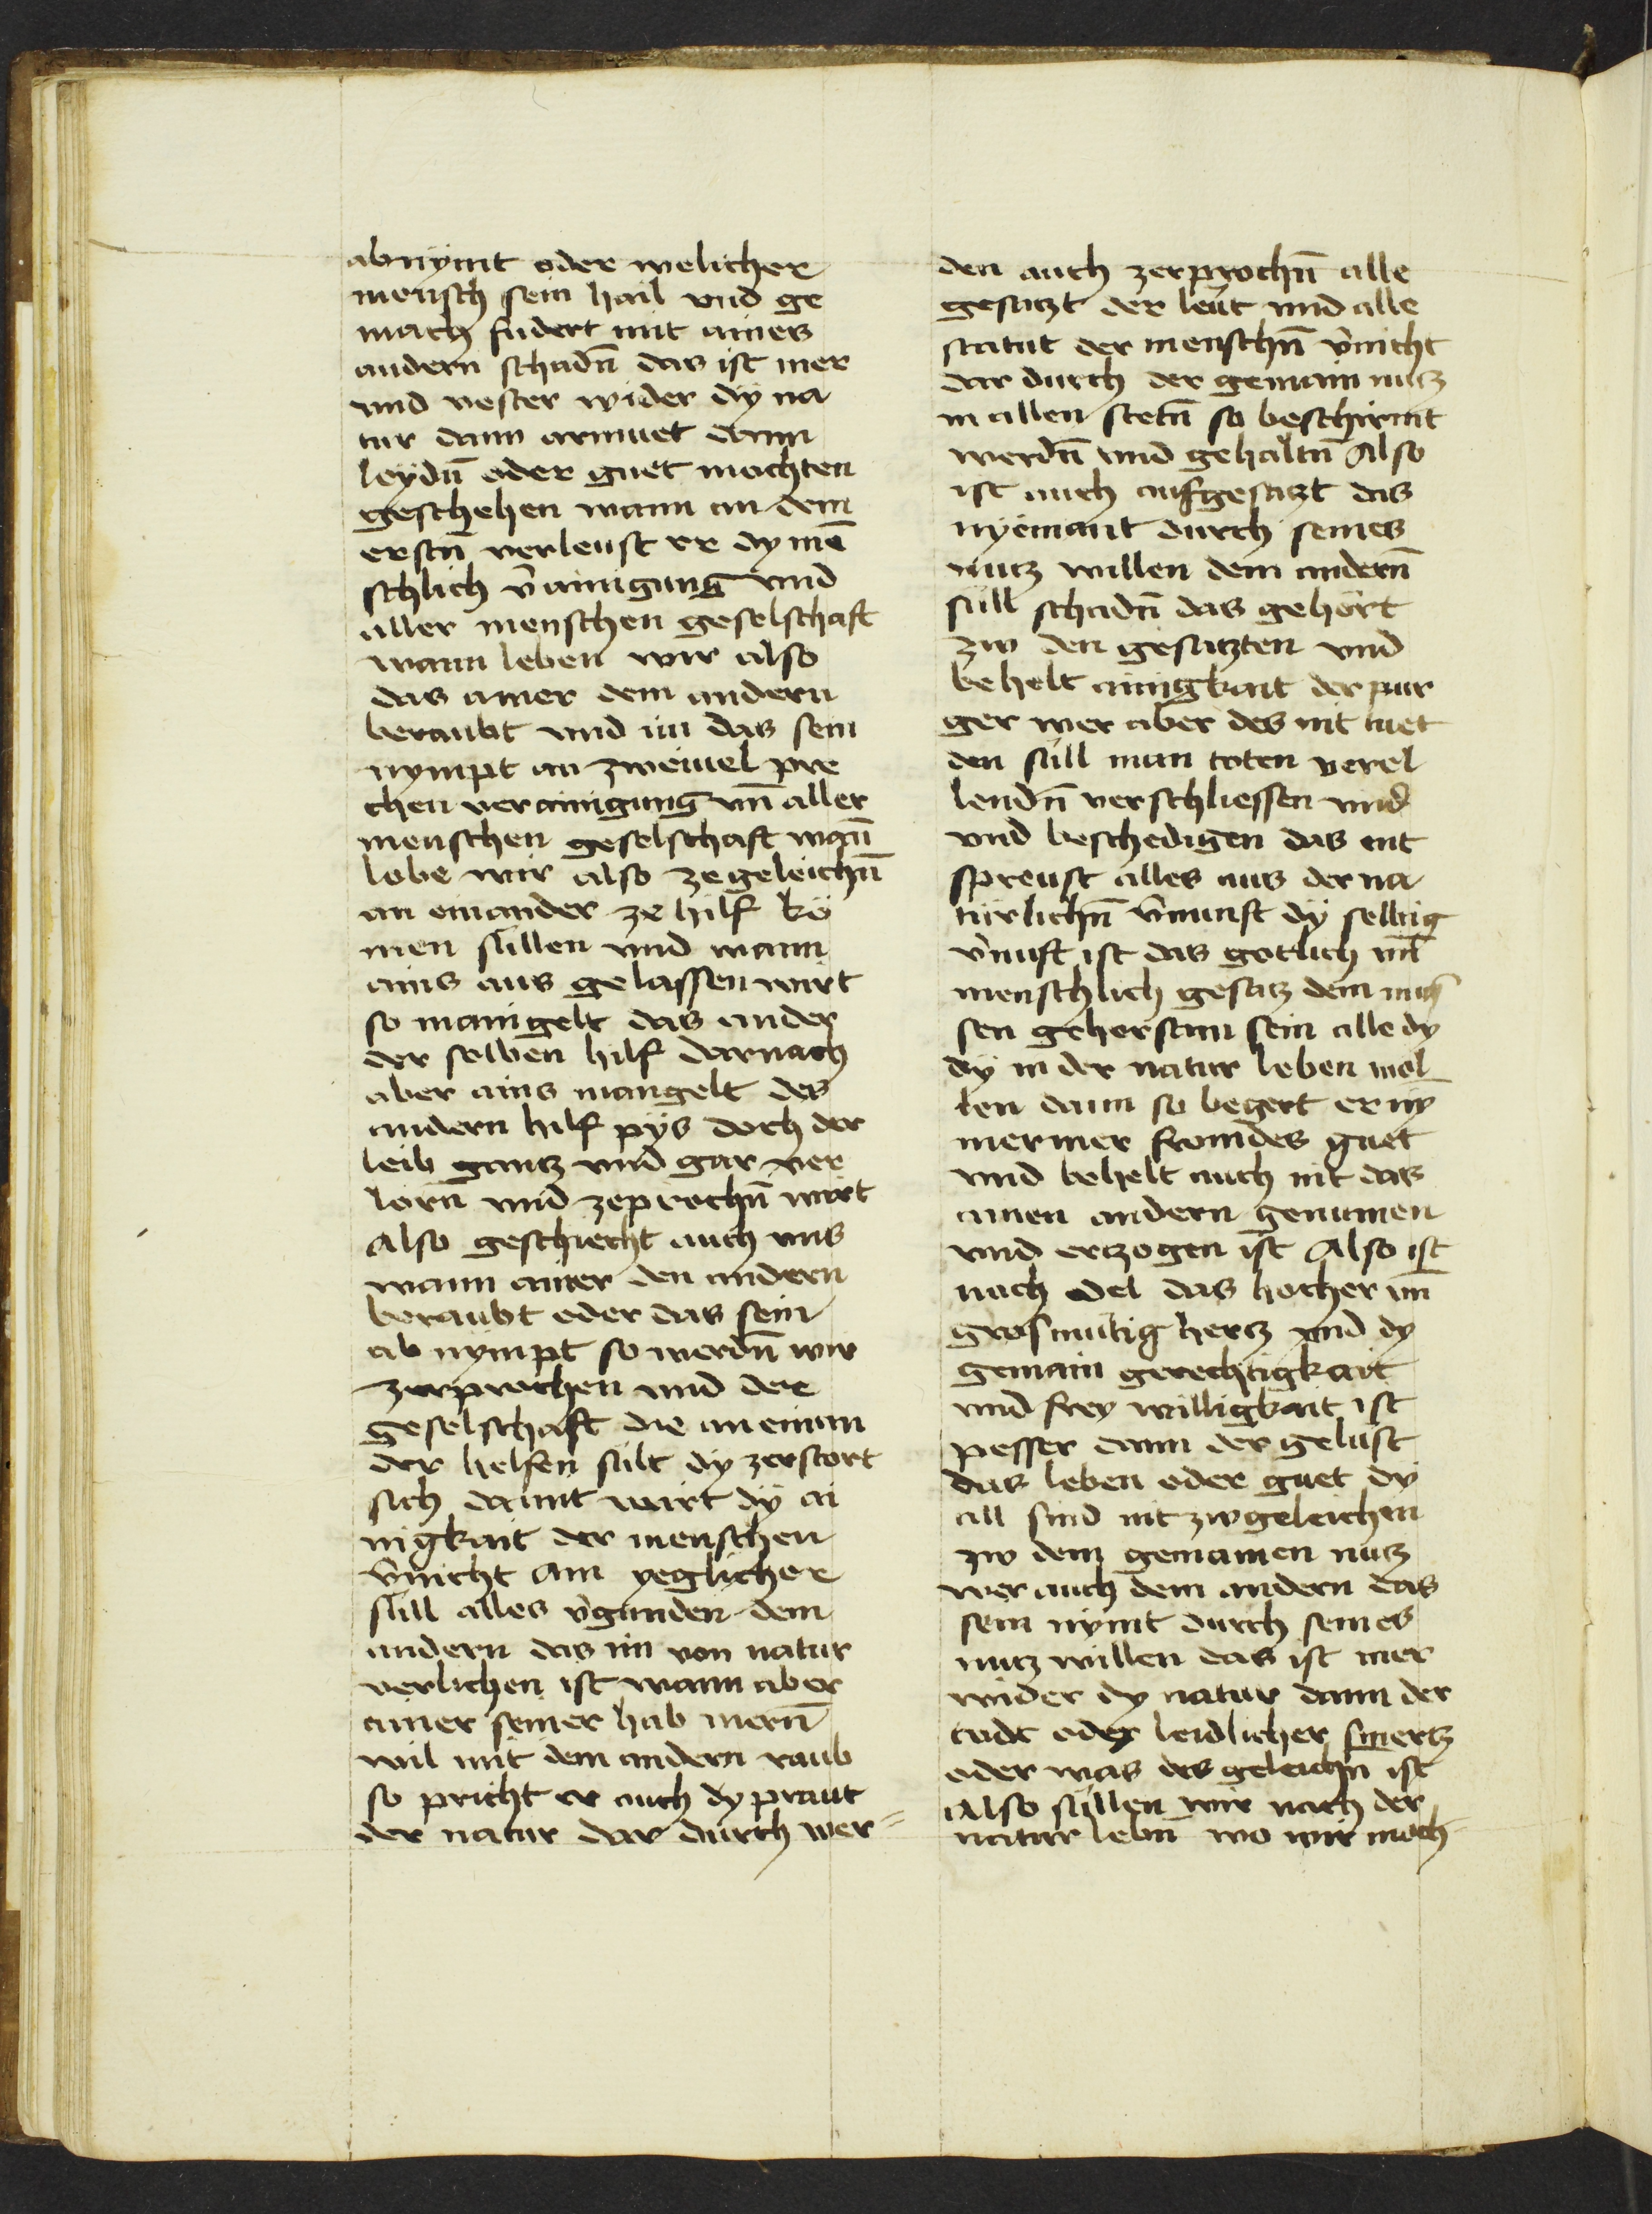 abnÿmt oder welicher
mensch sein hail vnd ge
mach fudert mit aines
andern schadn̄ das ist mer
vnd vester wider dÿ na
tur dann armuet dann
leÿdn̄ oder guet mochten
geschehen wann an dem
erstn̄ verleust er dy mē
schlich v̄ainigung vnd
aller menschen geselschaft
wann leben wir also
das ainer dem andern
beraubt vnd im das sein
nympt an zweiuel pre
chen verainigung vn̄ aller
menschen geselschaft wan̄
lebe wir also zegeleichn̄
an einander ze hilf kö
men süllen vnd wann
ains aus gelassen wirt
so maingelt das ander
der selben hilf darnach
aber ains mangelt des
andern hilf pÿs doch der
leib gantz vnd gar ver
lorn̄ vnd zeprochn̄ wirt
Also geschiecht auch vns
wann ainer den andern
beraubt oder das sein
ab nympt so werdn̄ wir
zerprochen vnd der
geselschaft die an einan
der helfen sült dy zerstort
sich damit wirt dÿ ai
nigkait der menschen
v̄nicht Ain yeglicher
süll alles v̄gunden dem
andern das im von natur
verlichen ist wann aber
ainer seiner hab mern̄
wil mit dem andern raub
so pricht er auch dy praut
der natur dar durch wer=
den auch zerprochn̄ alle
gesatzt der leüt vnd alle
statut der menschn̄ v̄nicht
dar durch der gemain nutz
in allen stetn̄ so beschirmt
werdn̄ vnd gehaltn̄ Also
ist auch aufgesatzt das
nyemant durch seines
nutz willen dem andern̄
süll schadn̄ das gehört
zw den gesatzten vnd
behelt ainigkait der pur
ger wer aber des nit tuet
den süll man toten verel
lendn̄ verschliessen vnd
vnd beschedigen das ent
spreust alles aus der na
türlichn̄ v̄nunft dÿ selbig
v̄nuft ist das gotlich vn̄
menschlich gesatz dem mus
sen gehorsam sein alle dy
dÿ in der natur leben wel
len dann so begert er ny
mer mer fromdes guet
vnd behelt auch nit das
ainen andern genumen
vnd ertzogen ist Also ist
nach edel das hocher vn̄
grosmütig hertz vnd dy
gemain gerechtigkait
vnd frey willigkait ist
pesser dann der gelust
das leben oder guet dy
all sind nit zwgeleichen
zw dem gemainen nutz
wer auch dem andern das
sein nymt durch seines
nutz willen das ist mer
wider dy natur dann der
todt oder leidlicher smertz
oder was des geleichn̄ ist
Also süllen wir nach der
natur lebn̄ wo wir moch=